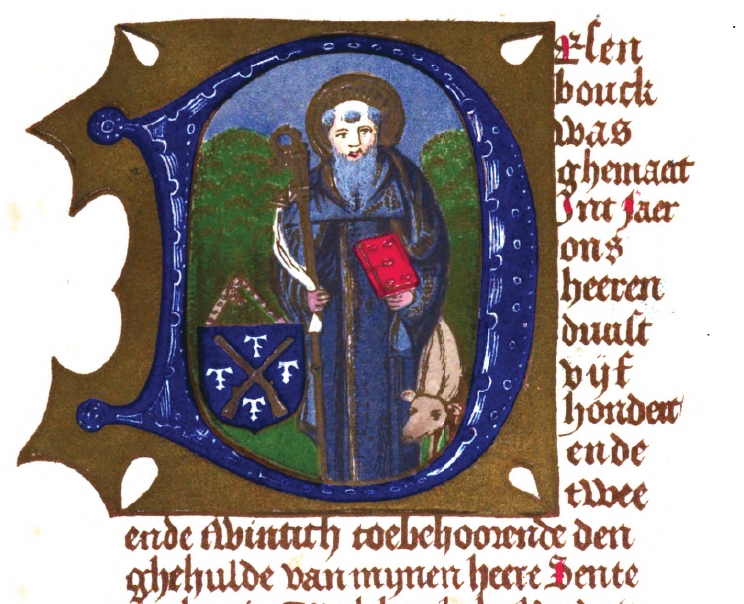 Desen
bouck
was
ghemaact
Int Jaer
ons
heeren
duust
vijf
hondert
ende
twee
ende twintich toebehoorende den
ghehulde van mynen heere Sente